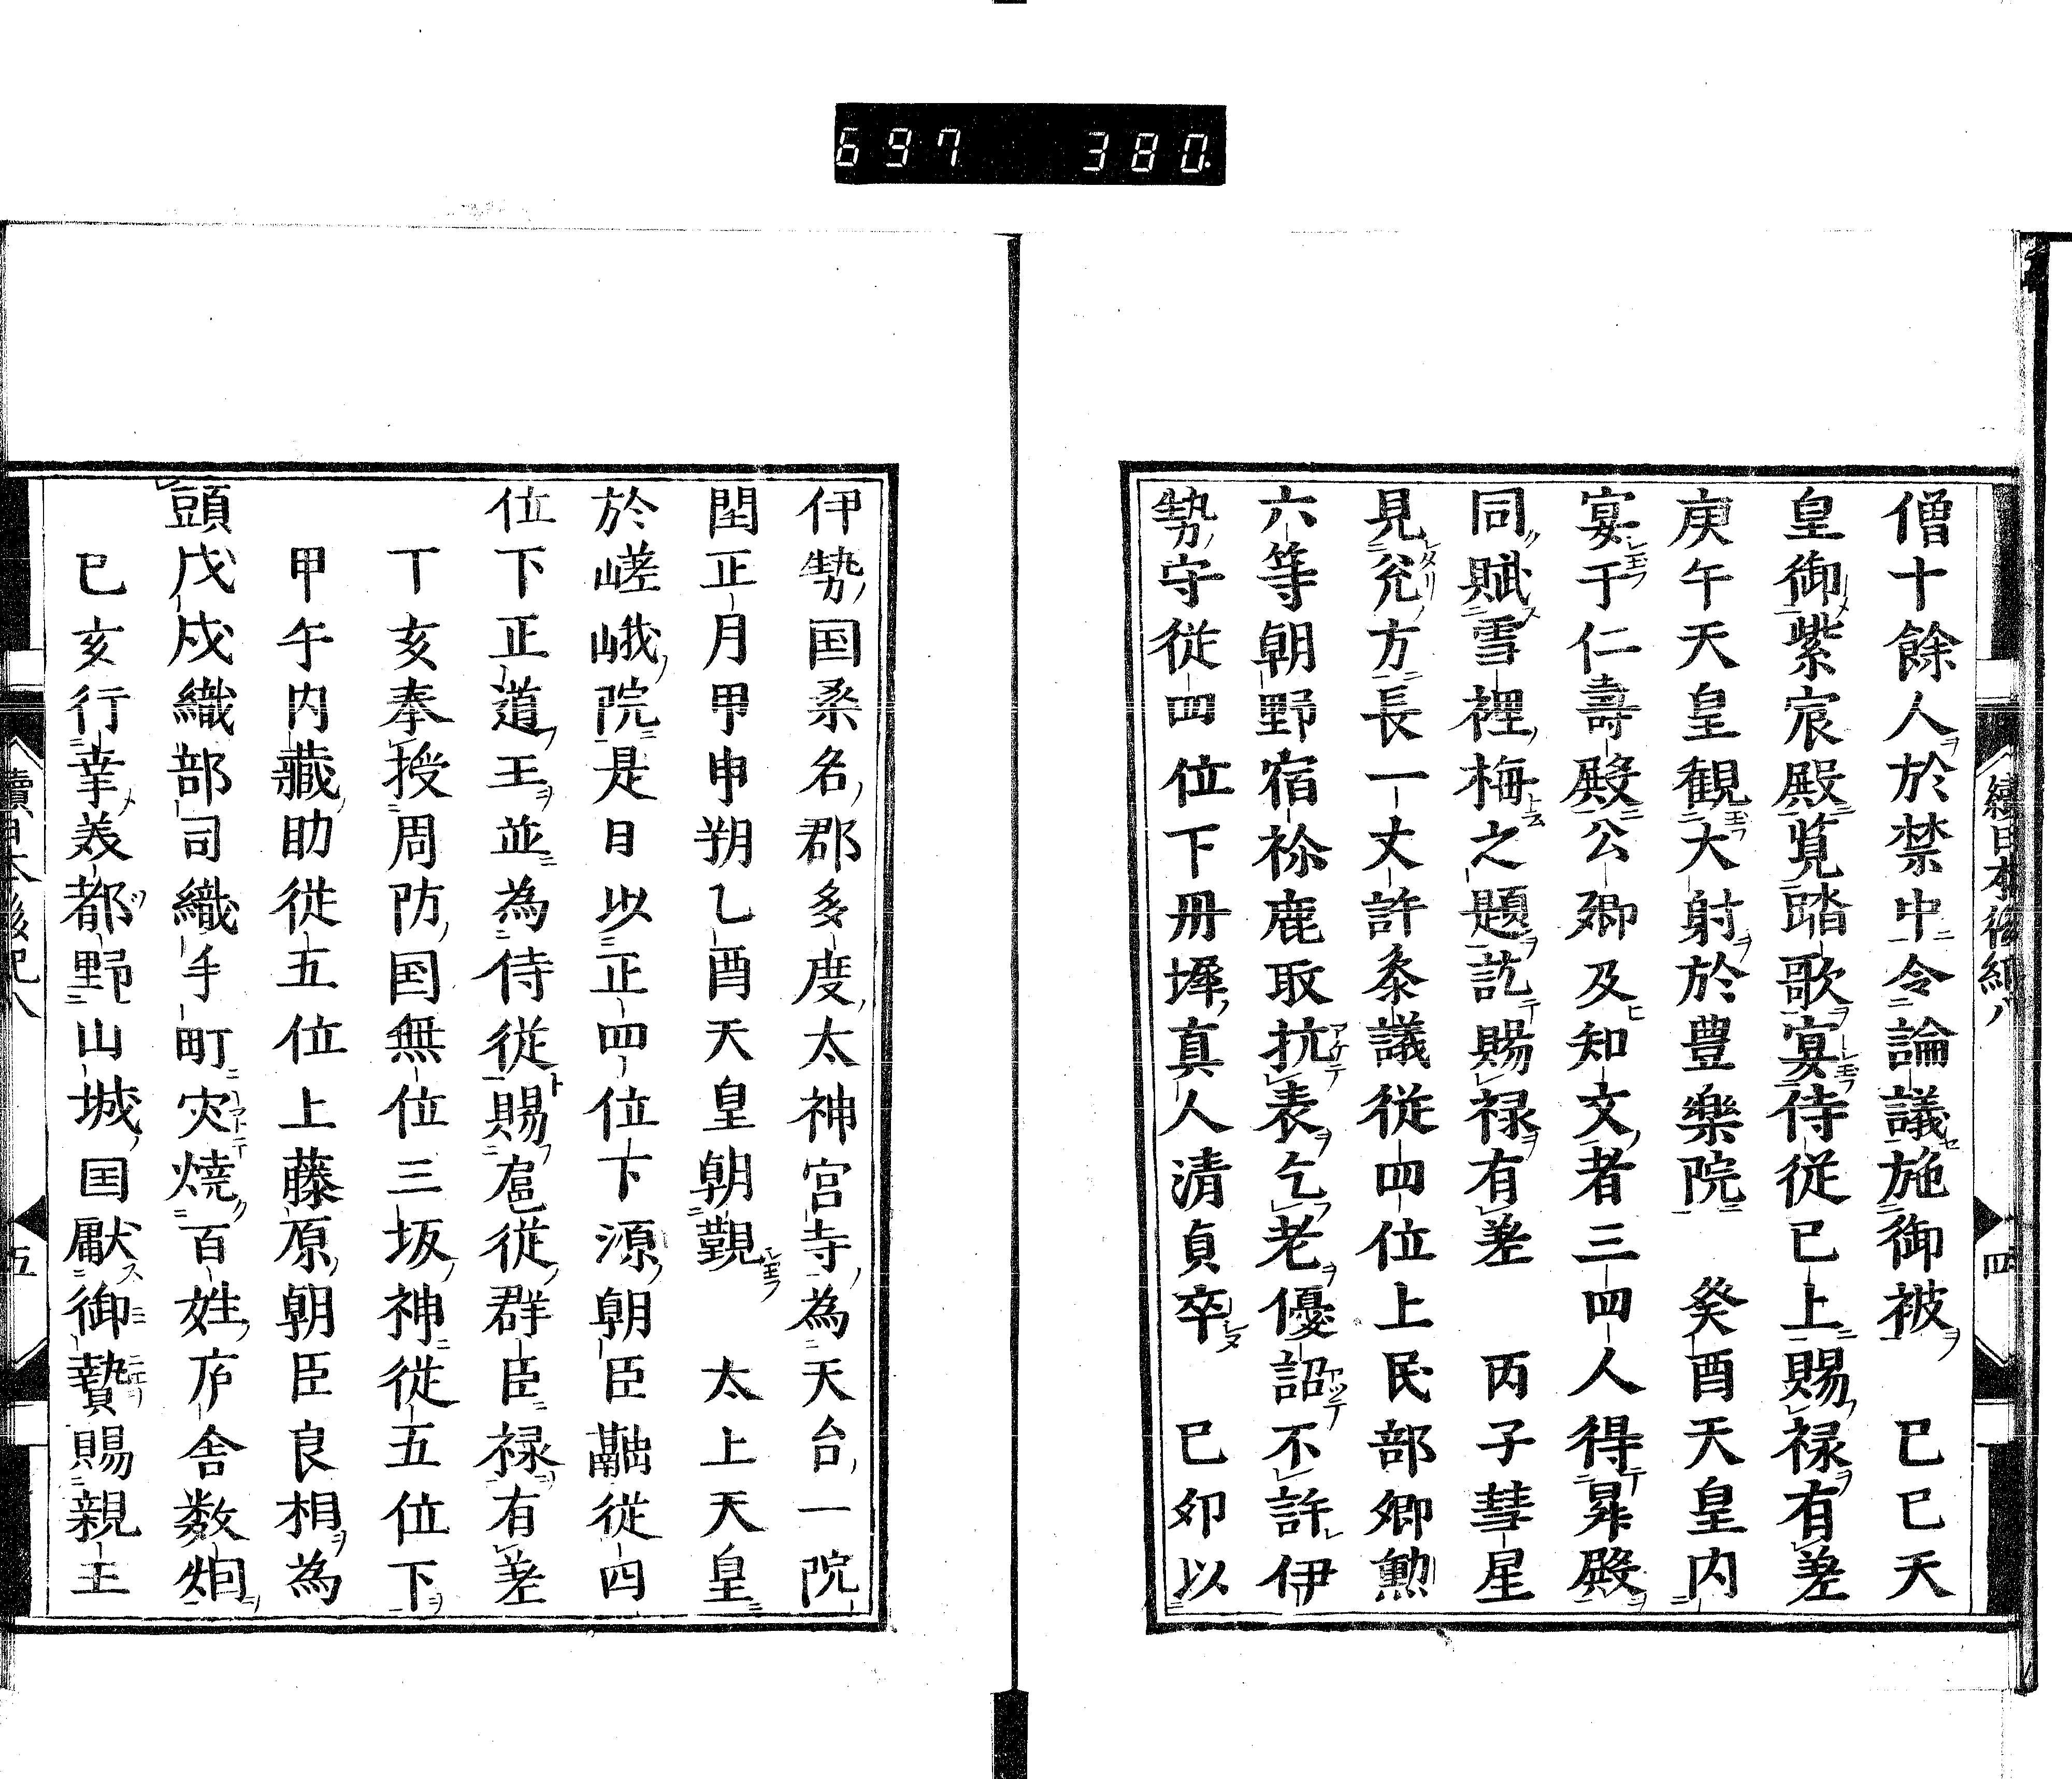 697 380.
續日本後紀八
四
僧十餘人於禁中令論議施御被 已巳天
皇御紫宸殿覧踏歌宴侍従已上賜禄有差
庚午天皇観大射於豊楽院 癸酉天皇内
宴于仁壽殿公卿及知文者三四人得昇殿
同賦雪裡梅之題訖賜禄有差 丙子彗星
見兊方長一丈許叅議従四位上民部卿勲
六等朝野宿祢鹿取抗表乞老優詔不許伊
勢守従四位下冊墀真人清貞卒 已卯以
伊勢国桑名郡多度太神宮寺為天台一院
閏正月甲申朔乙酉天皇朝覲 太上天皇
於嵯峨院是日以正四位下源朝臣融従四
位下正道王並為侍従賜扈従群臣禄有差
丁亥奉授周防国無位三坂神従五位下
甲午内藏助従五位上藤原朝臣良相為
頭戊戍織部司織手町灾焼百姓庐舎数烟
已亥行幸美都野山城国獻御贄賜親王
續日本後紀八
五